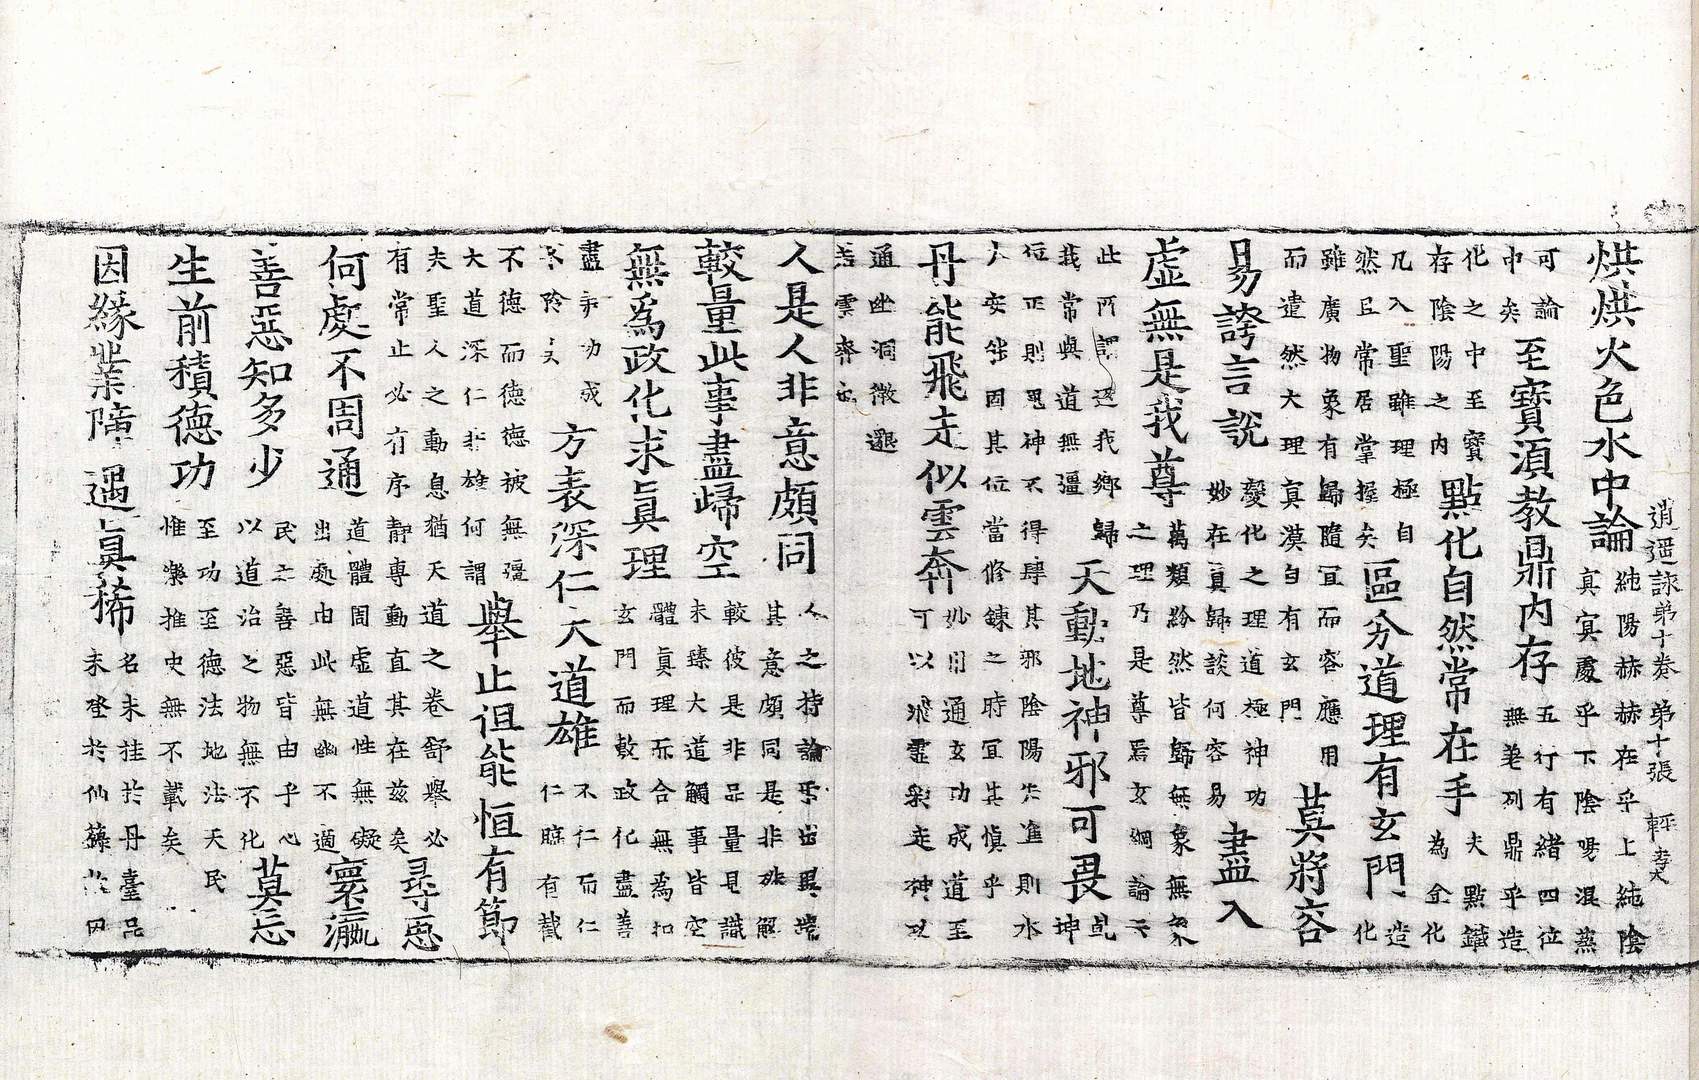 逍遥詠弟十卷 弟十張
烘烘火色水中論
純陽赫赫在乎上純陰
真冥處乎下陰陽混蒸
可論
中矣
至寶湏教鼎内存
五行有緒四位
無差列鼎乎造
化之中至寶
存陰陽之内
點化自然常在手
夫點鐵
為金化
凡入聖雖理極自
然且常居掌握矣
區分道理有玄門
造
化
雖廣物象有歸隨冝而容應用
而違然大理真漠自有玄門
莫將容
易誇言說
變化之理道極神功
妙在真歸談何容易
盡入
虛無是我尊
萬類紛然皆歸無象無象
之理乃是尊焉玄綱論云
此所謂返我鄉歸
我常與道無彊
天動地神邪可畏
乹
坤
位正則鬼神不得肆其邪陰陽失進則水
火安能固其位當修鍊之時冝其慎乎
丹能飛走似雲奔
妙用通玄功成道至
可以飛靈衆走神以
通幽洞微還
若雲奔也
人是人非意頗同
人之持論爭出異端
其意頗同是非難解
較量此事盡歸空
較彼是非品量見識
未臻大道觸事皆空
無為政化求真理
體真理而合無為扣
玄門而敷政化盡善
盡美功成
不矜又
方表深仁大道雄
不仁而仁
仁臨有截
不德而德德被無彊
大道深仁非雄何謂
舉止詎能恒有節
夫聖人之動息猶天道之卷舒舉必
有常止必有序靜專動直其在兹矣
尋思
何處不周通
道體周虛道性無礙
出處由此無幽不適
寰瀛
善惡知多少
民之善惡皆由乎心
以道治之物無不化
莫忘
生前積德功
至功至德法地法天民
惟樂推史無不載矣
因緣業障遇真稀
名未挂於丹臺品
未登於仙籙